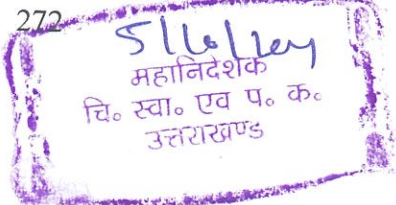 272
महानिदेशक
चि० स्वा० एव प० क०
उत्तराखण्ड